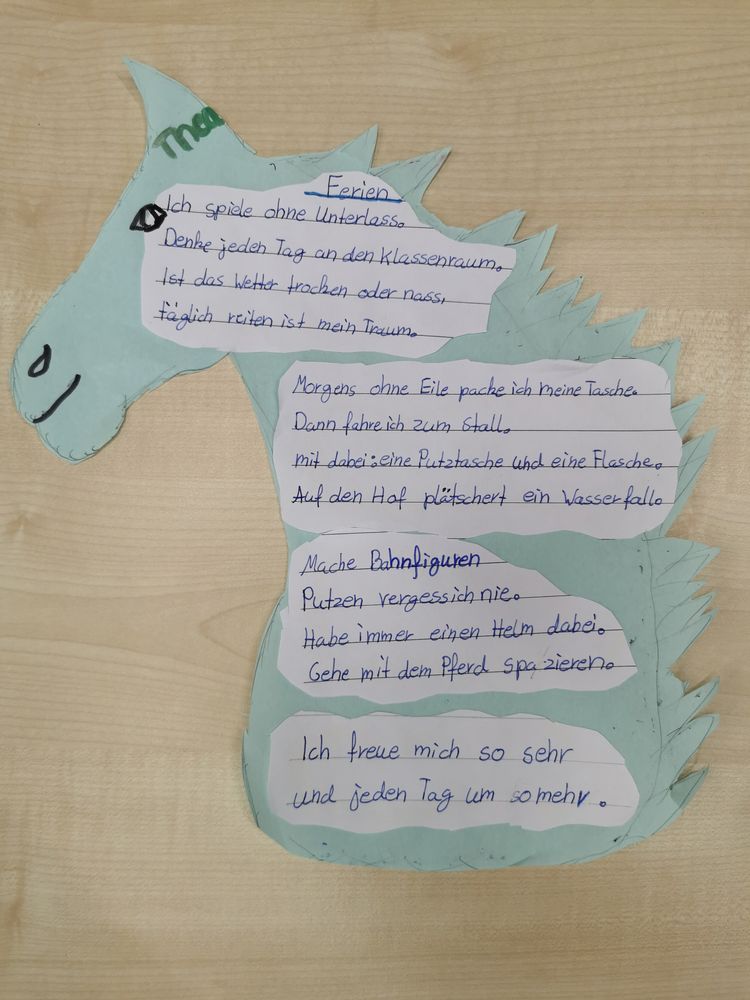 Thea
Ferien
Ich spiele ohne Unterlass.
Denke jeden Tag an den Klassenraum.
Ist das Wetter trocken oder nass,
täglich reiten ist mein Traum.
Morgens ohne Eile packe ich meine Tasche.
Dann fahre ich zum Stall.
mit dabei: eine Putztasche und eine Flasche.
Auf den Hof plätschert ein Wasserfall.
Mache Bahnfiguren
Putzen vergess ich nie.
Habe immer einen Helm dabei.
Gehe mit dem Pferd spazieren.
Ich freue mich so sehr
und jeden Tag um so mehr.